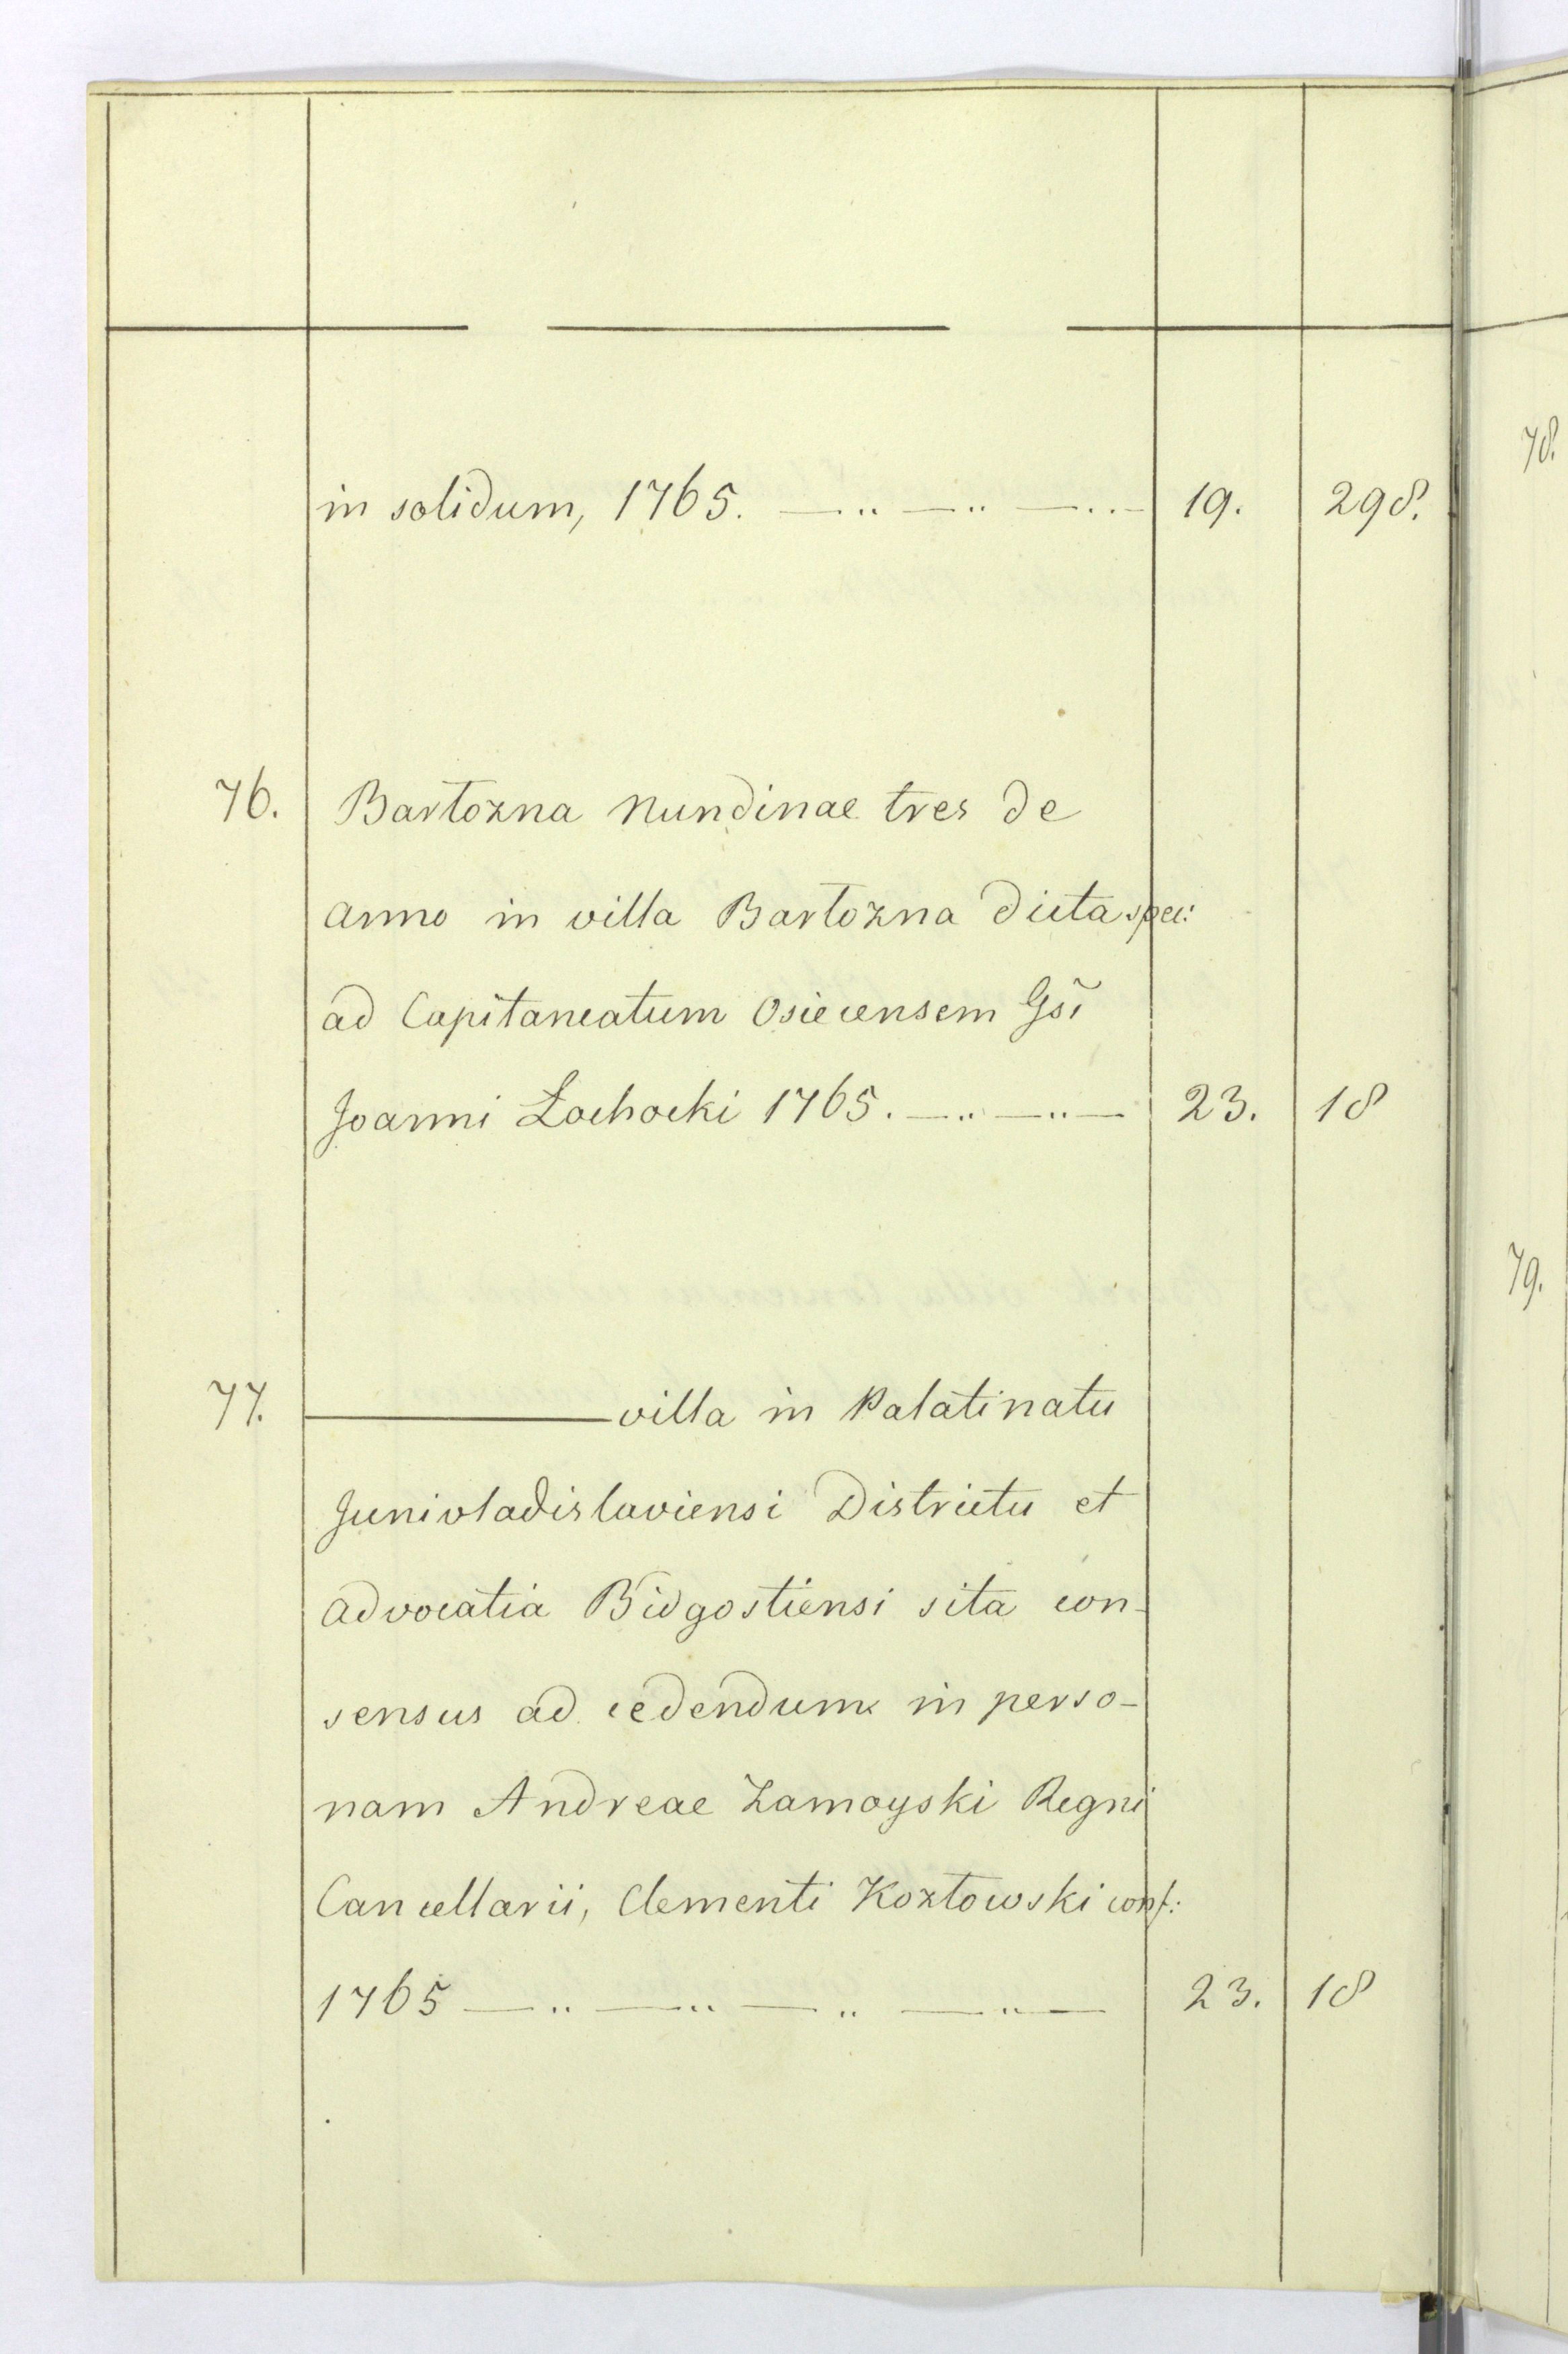 in solidum, 1765. — .. — .. — .. — 19. 298.
76. Bartozna Nundinae tres de
anno in villa Bartozna dicta spec:
ad Capitaneatum Osiecensem Gsi
Joanni Łochocki 1765. — .. — .. — 23. 18
77. ——— villa in Palatinatu
Junivladislaviensi Districtu et
advocatia Bidgostiensi sita con-
sensus ad cedendum in perso-
nam Andreae Zamoyski Regni
Cancellarii, Clementi Kozłowski conf:
1765 — .. — .. — .. — .. — 23. 18
78.
79.